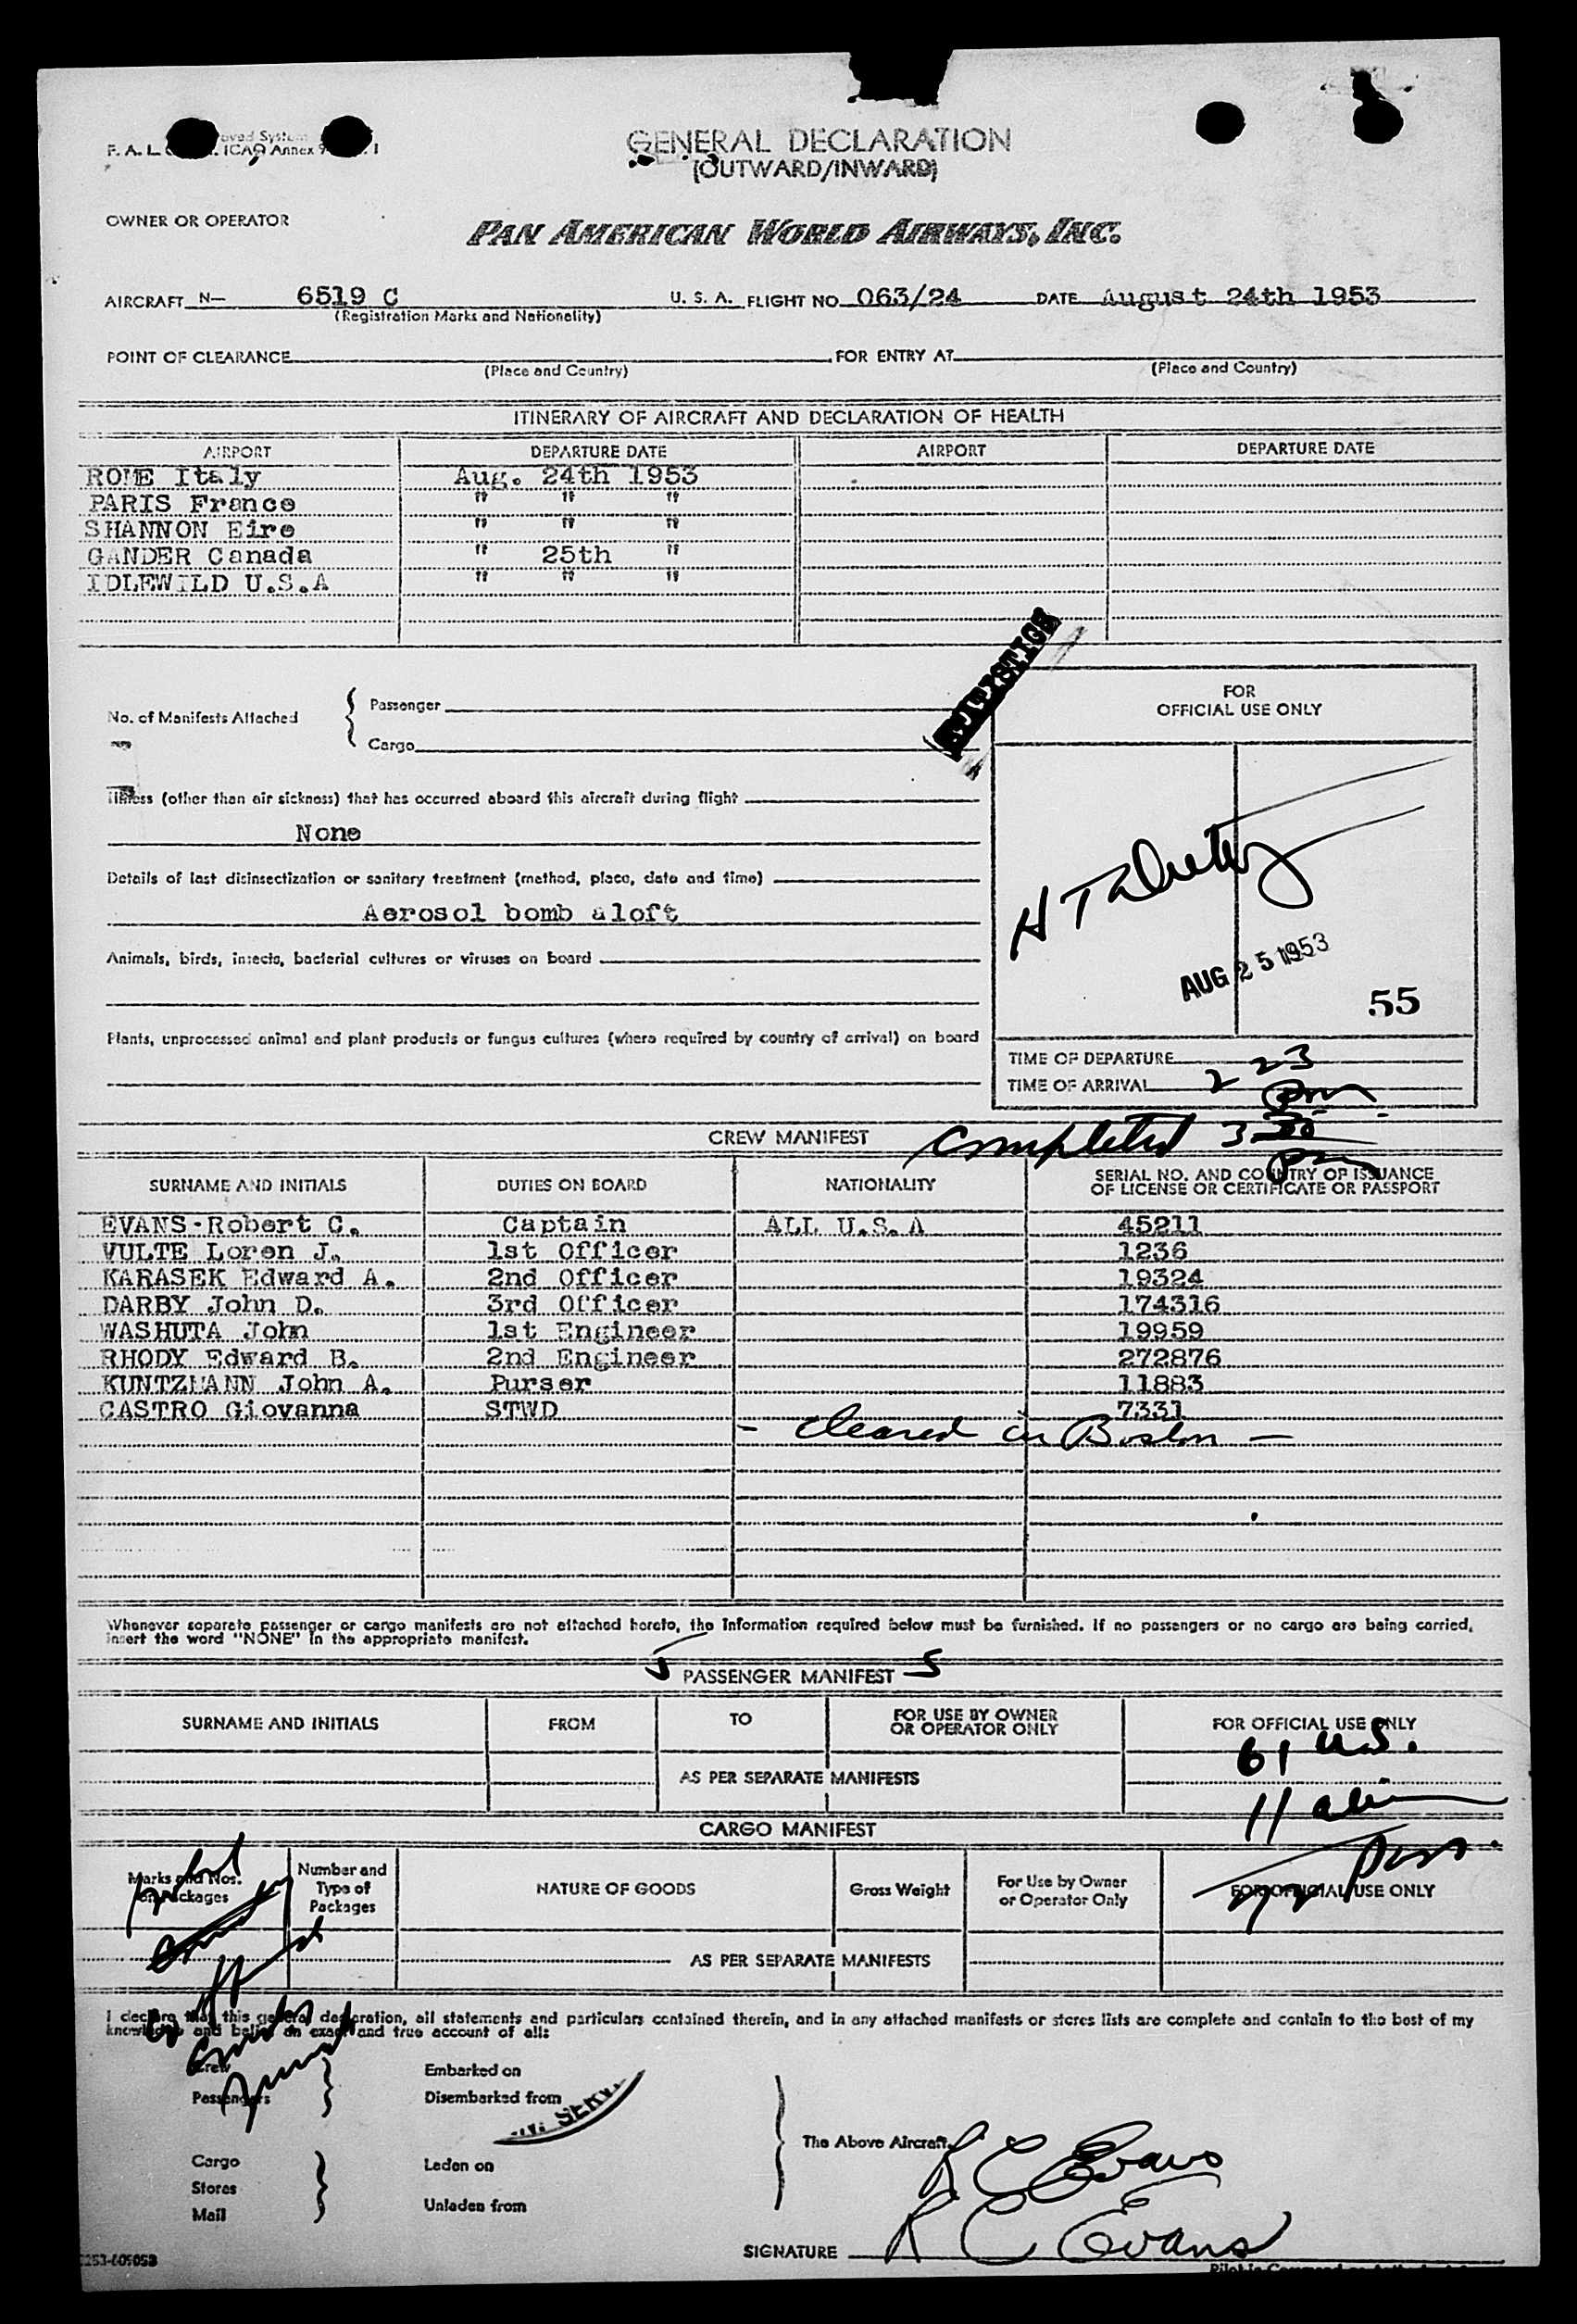 GENERAL DECLARATION
(OUTWARD/INWARD)
F. A. L. ICAO Annex 9
OWNER OR OPERATOR
PAN AMERICAN WORLD AIRWAYS, INC.
AIRCRAFT N— 6519 C U. S. A. FLIGHT NO 063/24 DATE August 24th 1953
(Registration Marks and Nationality)
POINT OF CLEARANCE FOR ENTRY AT
(Place and Country) (Place and Country)
ITINERARY OF AIRCRAFT AND DECLARATION OF HEALTH
AIRPORT DEPARTURE DATE AIRPORT DEPARTURE DATE
ROME Italy Aug. 24th 1953
PARIS France " " "
SHANNON Eire " " "
GANDER Canada " 25th "
IDLEWILD U.S.A " " "
No. of Manifests Attached { Passenger
Cargo
FOR
OFFICIAL USE ONLY
Illness (other than air sickness) that has occurred aboard this aircraft during flight
None
Details of last disinsectization or sanitary treatment (method, place, date and time)
Aerosol bomb aloft
Animals, birds, insects, bacterial cultures or viruses on board
AUG 25 1953
55
Plants, unprocessed animal and plant products or fungus cultures (where required by country of arrival) on board
TIME OF DEPARTURE
TIME OF ARRIVAL 2 23 pm
CREW MANIFEST completed 3 30 pm
SURNAME AND INITIALS DUTIES ON BOARD NATIONALITY SERIAL NO. AND COUNTRY OF ISSUANCE
OF LICENSE OR CERTIFICATE OR PASSPORT
EVANS-Robert C. Captain ALL U.S.A 45211
VULTE Loren J. 1st Officer 1236
KARASEK Edward A. 2nd Officer 19324
DARBY John D. 3rd Officer 174316
WASHUTA John 1st Engineer 19959
RHODY Edward B. 2nd Engineer 272876
KUNTZMANN John A. Purser 11883
CASTRO Giovanna STWD 7331
- cleared in Boston -
Whenever separate passenger or cargo manifests are not attached hereto, the information required below must be furnished. If no passengers or no cargo are being carried,
insert the word "NONE" in the appropriate manifest.
5 PASSENGER MANIFEST 5
SURNAME AND INITIALS FROM TO FOR USE BY OWNER
OR OPERATOR ONLY FOR OFFICIAL USE ONLY
61 U.S.
AS PER SEPARATE MANIFESTS
11 alien
CARGO MANIFEST
72 pass.
Marks and Nos.
on Packages Number and
Type of
Packages NATURE OF GOODS Gross Weight For Use by Owner
or Operator Only FOR OFFICIAL USE ONLY
AS PER SEPARATE MANIFESTS
I declare that this general declaration, all statements and particulars contained therein, and in any attached manifests or stores lists are complete and contain to the best of my
knowledge and belief an exact and true account of all:
Crew
Passengers
Embarked on
Disembarked from
Cargo
Stores
Mail
Laden on
Unladen from
The Above Aircraft.
R C Evans
SIGNATURE R C Evans